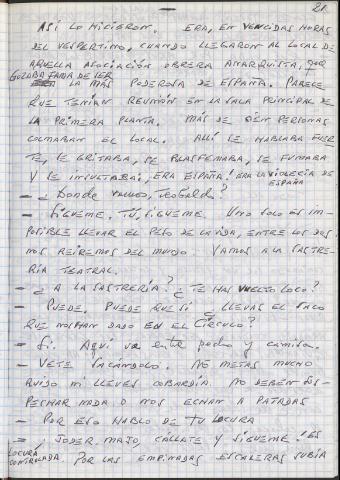 21.
ASÍ LO HICIERON. ERA, EN VENCIDAS HORAS
DEL VESPERTINO, CUANDO LLEGARON AL LOCAL DE
AQUELLA ASOCIACIÓN OBRERA ANARQUISTA, QUE
GOZABA FAMA DE SER
LA MÁS PODEROSA DE ESPAÑA. PARECE
QUE TENÍAN REUNIÓN EN LA SALA PRINCIPAL DE
LA PRIMERA PLANTA. MÁS DE CIEN PERSONAS
COLMABAN EL LOCAL. ALLÍ SE HABLABA FUER
TE, SE GRITABA, SE BLASFEMABA, SE FUMABA
Y SE INSULTABA; ERA ESPAÑA! ERA LA VIOLENCIA DE
ESPAÑA
- ¿ DONDE VAMOS, TEOBALDO?
- SÍGUEME. TÚ, SÍGUEME. UNO SOLO ES IM-
POSIBLE LLEVAR EL PESO DE LA VIDA, ENTRE LOS DOS
NOS REIREMOS DEL MUNDO. VAMOS A LA SASTRE-
RÍA TEATRAL.
- ¿ A LA SASTRERÍA? ¿ TE HAS VUELTO LOCO?
- PUEDE. PUEDE QUE SÍ ¿ LLEVAS EL SACO
QUE NOS HAN DADO EN EL CÍRCULO?
- SÍ. AQUÍ VA ENTRE PECHO Y CAMISA.
- VETE SACÁNDOLO. NO METAS MUCHO
RUIDO NI LLEVES COBARDÍA. NO DEBEN SOS-
PECHAR NADA O NOS ECHAN A PATADAS
- POR ESO HABLO DE TU LOCURA
- ¡ JODER, MAJO, CALLATE Y SÍGUEME! ES
LOCURA
CONTROLADA. POR LAS EMPINADAS ESCALERAS SUBÍA